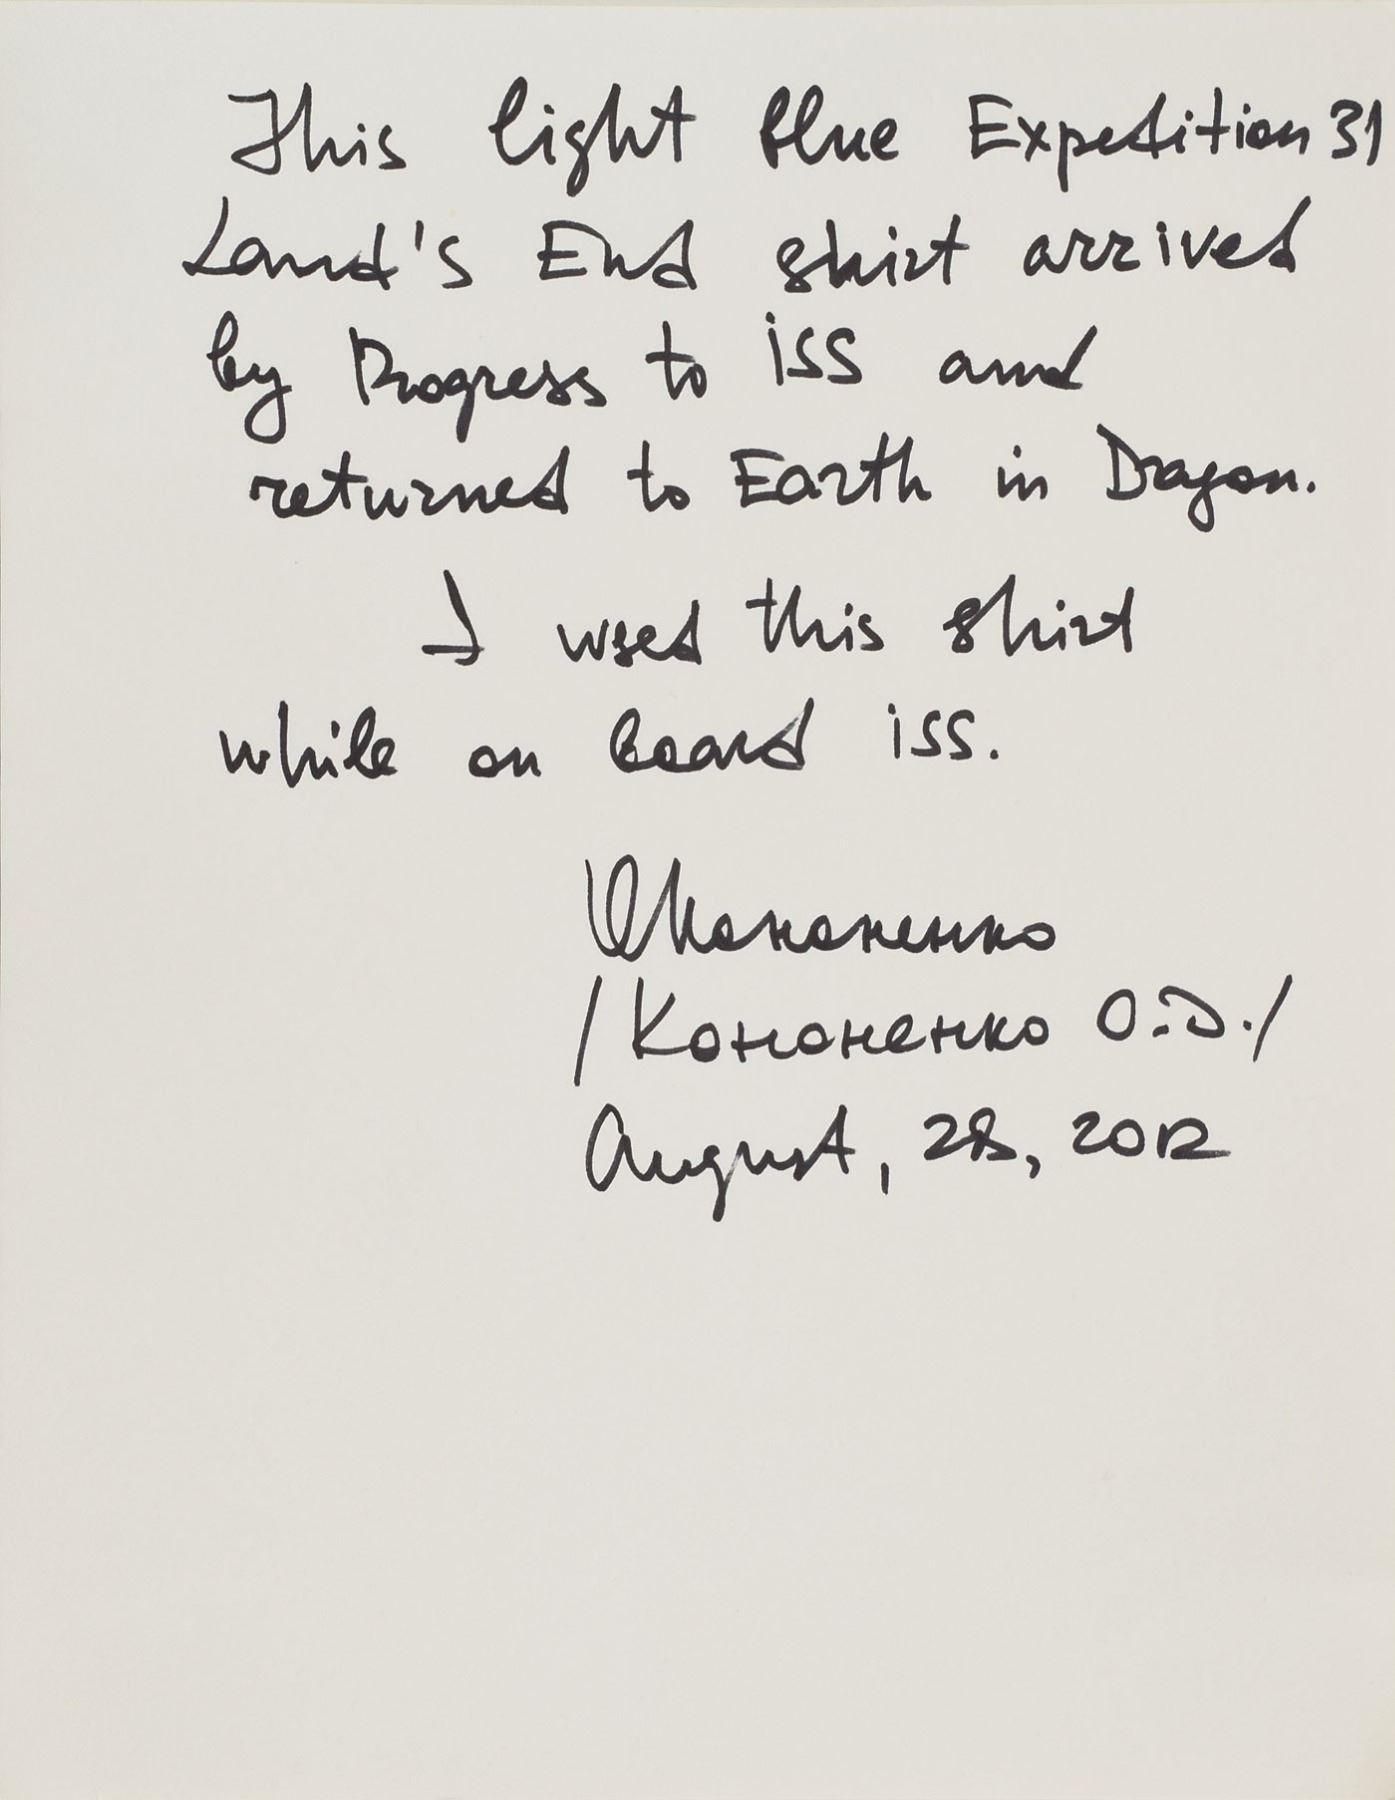 This light blue Expedition 31
Land's End shirt arrived
by Progress to ISS and
returned to Earth in Dragon.
I used this shirt
while on board ISS.
ОКононенко
/Кононенко О.Д./
August, 28, 2012